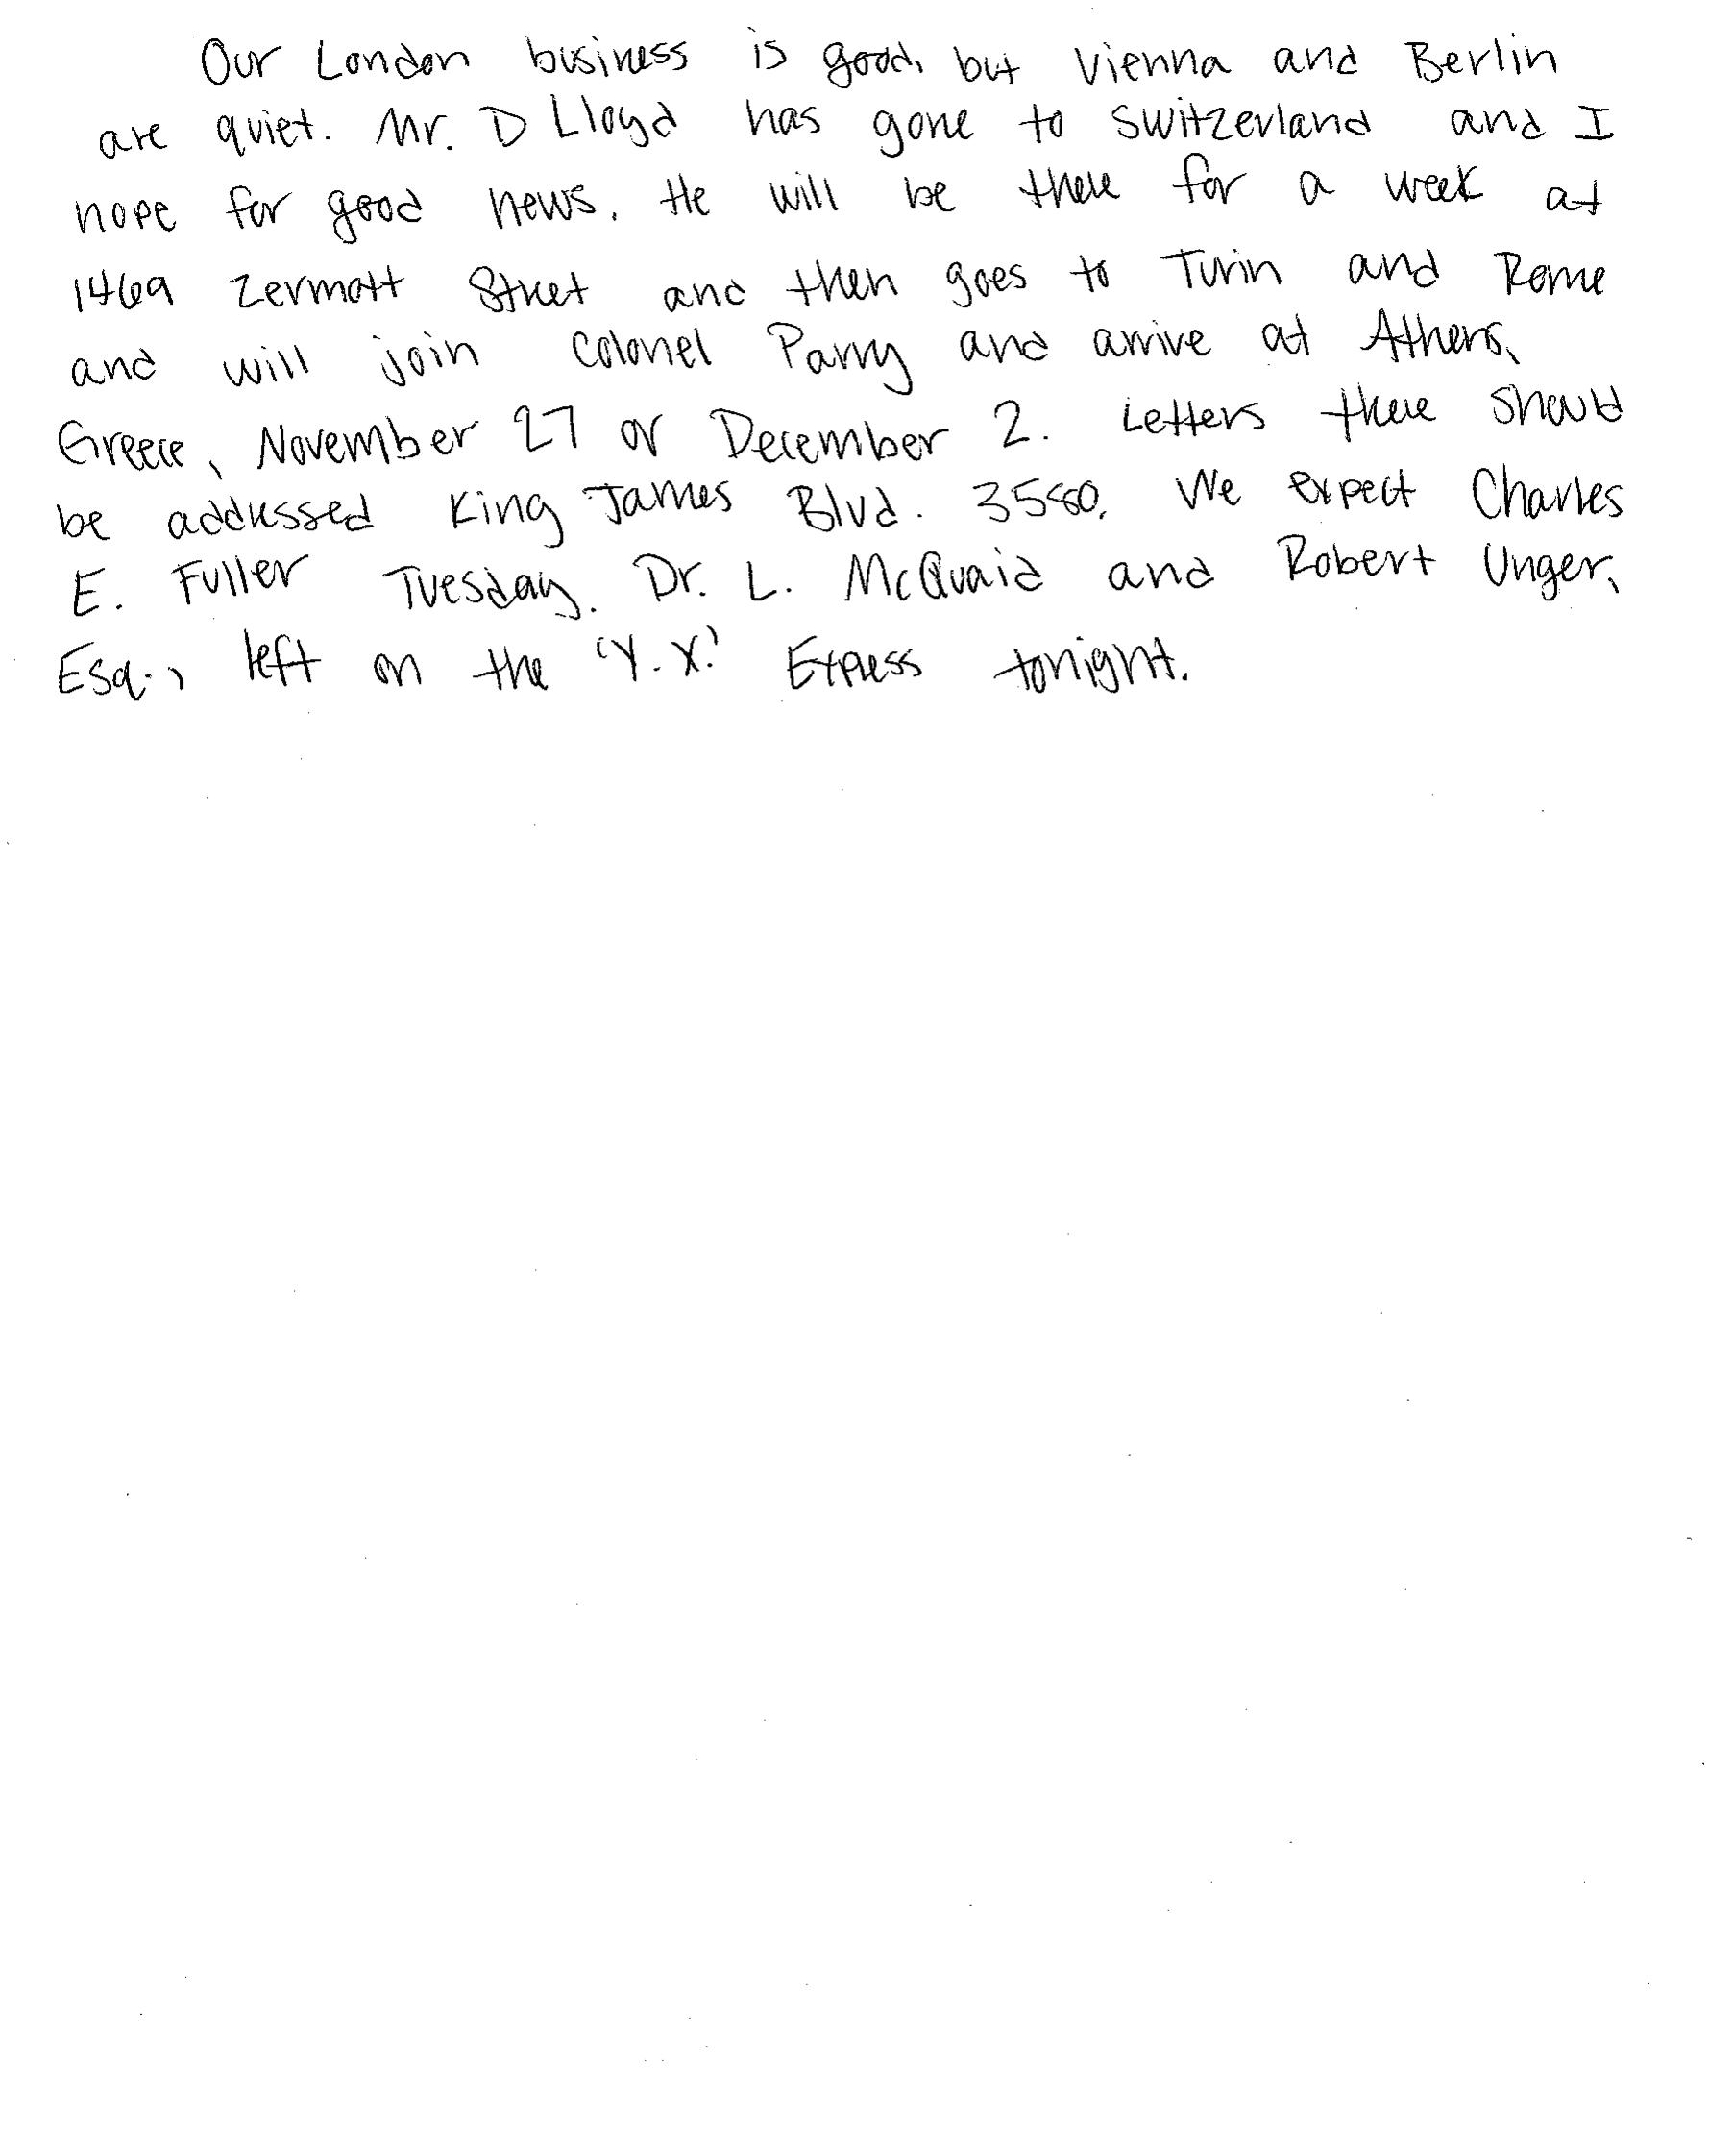 Our London business is good, but Vienna and Berlin
are quiet. Mr. D Lloyd has gone to Switzerland and I
hope for good news. He will be there for a week at
1469 Zermatt Street and then goes to Turin and Rome
and will join Colonel Parry and arrive at Athens,
Greece, November 27 or December 2. Letters there should
be addressed King James Blvd. 3580. We expect Charles
E. Fuller Tuesday. Dr. L. McQuaid and Robert Unger,
Esq., left on the 'Y.X.' Express tonight.